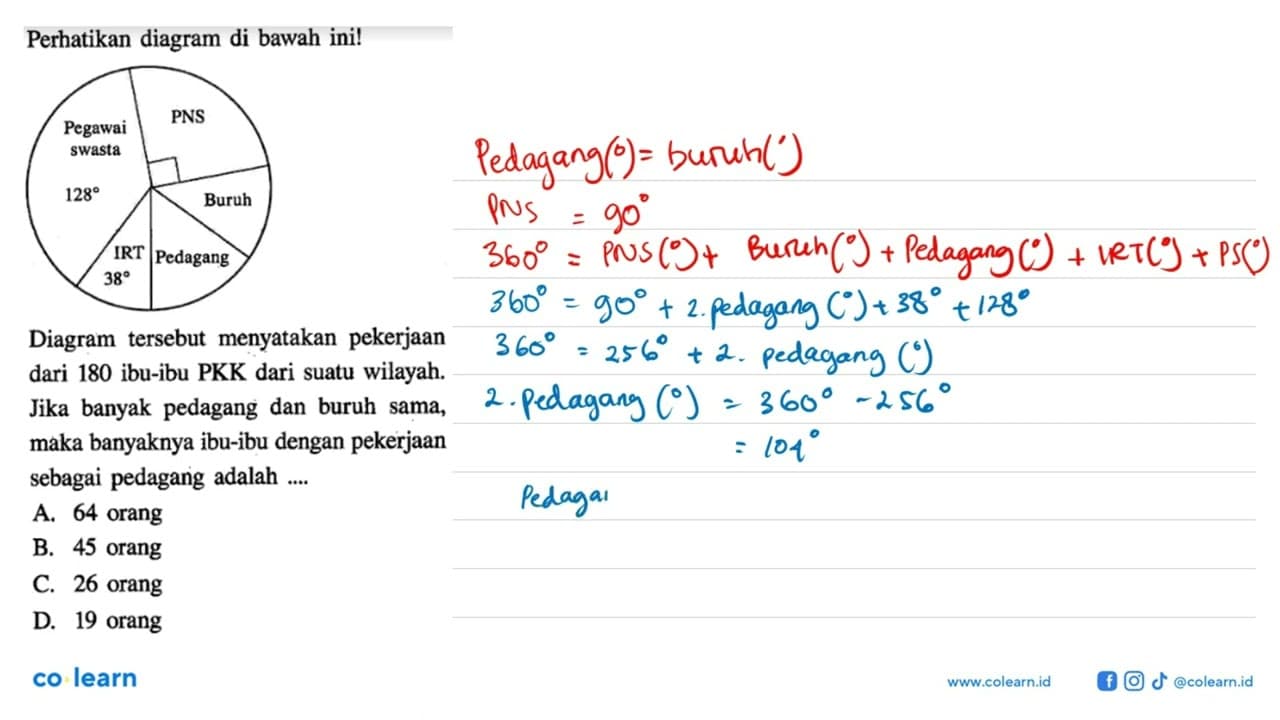 Perhatikan diagram di bawah ini!
Pegawai
swasta
128°
PNS
Buruh
IRT
38°
Pedagang
Diagram tersebut menyatakan pekerjaan
dari 180 ibu-ibu PKK dari suatu wilayah.
Jika banyak pedagang dan buruh sama,
maka banyaknya ibu-ibu dengan pekerjaan
sebagai pedagang adalah ....
A. 64 orang
B. 45 orang
C. 26 orang
D. 19 orang
Pedagang(°) = buruh(°)
PNS = 90°
360° = PNS(°) + Buruh(°) + Pedagang(°) + IRT(°) + PS(°)
360° = 90° + 2. pedagang (°) + 38° + 128°
360° = 256° + 2. pedagang (°)
2. pedagang (°) = 360° - 256°
= 104°
Pedagan
co learn
www.colearn.id
@colearn.id